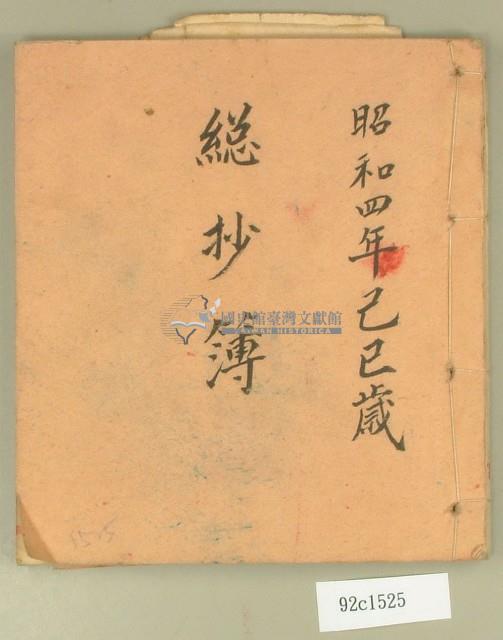 昭和四年己巳歳
総抄簿
國史館臺灣文獻館
TAIWAN HISTORICA
92c1525